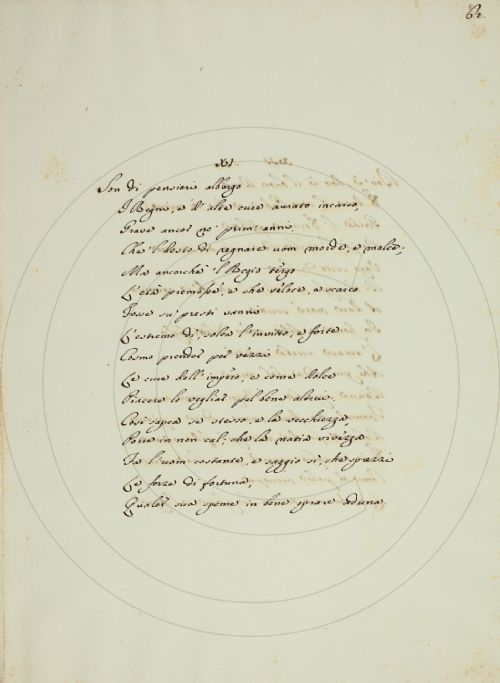 62.
XI.
Son di pensieri albergo
I Regni, e d'alte cure aurato incarco,
Grave ancor ne' primi anni,
Che 'l desio di regnare uom morde, e molce;
Ma ancorchè 'l Regio tergo
L'età piemesse, e che veloce, e scarco
Fosse su' presti vanni
L'estremo dì, solea l'invitto, e forte
Cosmo prender per vezzi
Le cure dell'impero, e come dolce
Piacere lo vegliar pel bene altrui.
Così sapea se stesso, e la vecchiezza
Porre in non cal; che la natia vivezza
Fa l'uom costante, e saggio sì, che sprezzi
Le forze di fortuna,
Qualor sua speme in bene oprare aduna